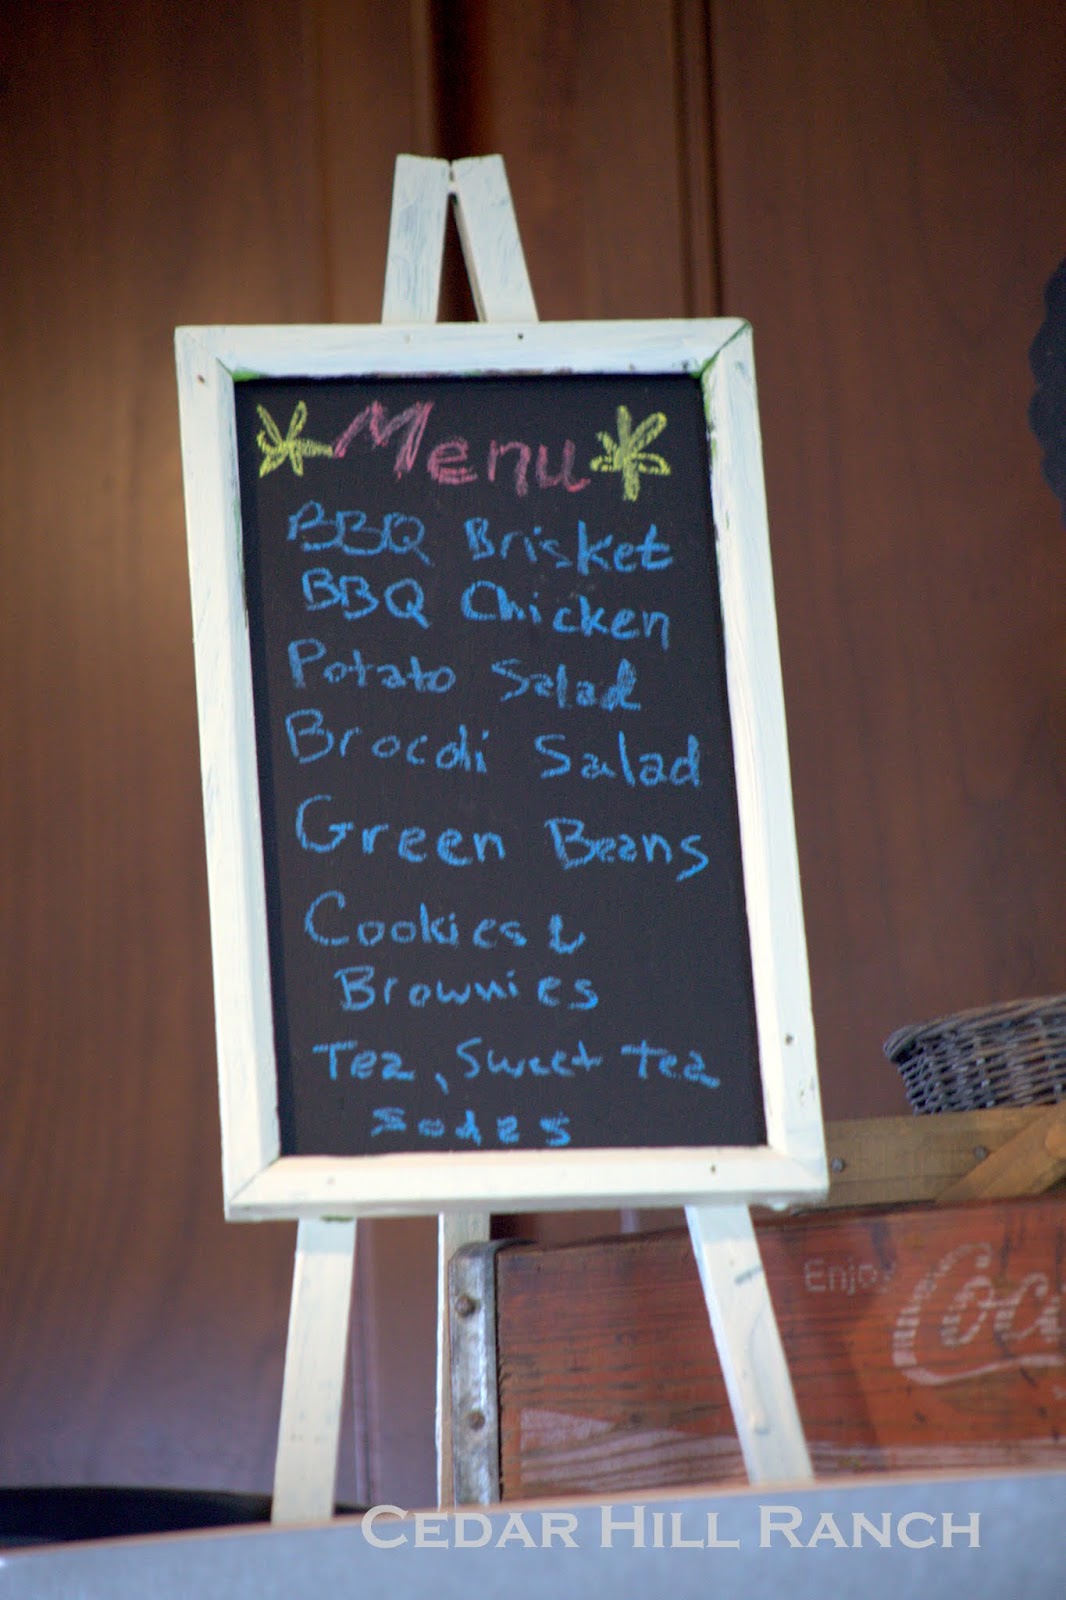 Menu
BBQ Brisket
BBQ Chicken
Potato Salad
Brocoli Salad
Green Beans
Cookies &
Brownies
Tea, Sweet Tea
Sodas
Enjoy
CEDAR HILL RANCH